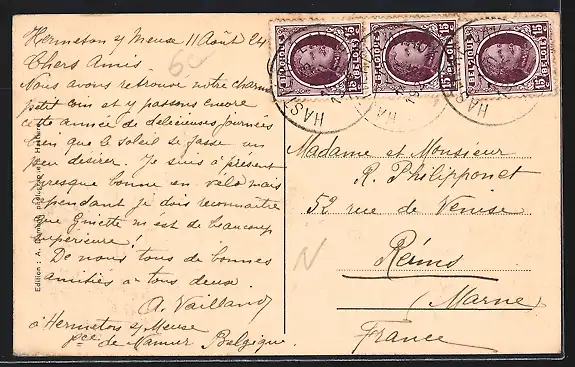 Hermeton s/ Meuse 11 Août 24
Chers Amis.
Nous avons retrouvé notre charmant
petit coin et y passons encore
cette année de délicieuses journées
bien que le soleil se fasse un
peu désirer. Je suis à présent
presque bonne en vélo mais
cependant je dois reconnaître
que Ginette m'est de beaucoup
supérieure!
De nous tous de bonnes
amitiés à tous deux.
A. Vailland
à Hermeton s/ Meuse
pce de Namur Belgique.
Edition : A.
BELGIQUE 15c BELGIE
BELGIQUE 15c BELGIE
BELGIQUE 15c BELGIE
HAST
HA
HAST
Madame et Monsieur
R. Philipponet
52 rue de Venise
Reims
(Marne)
France